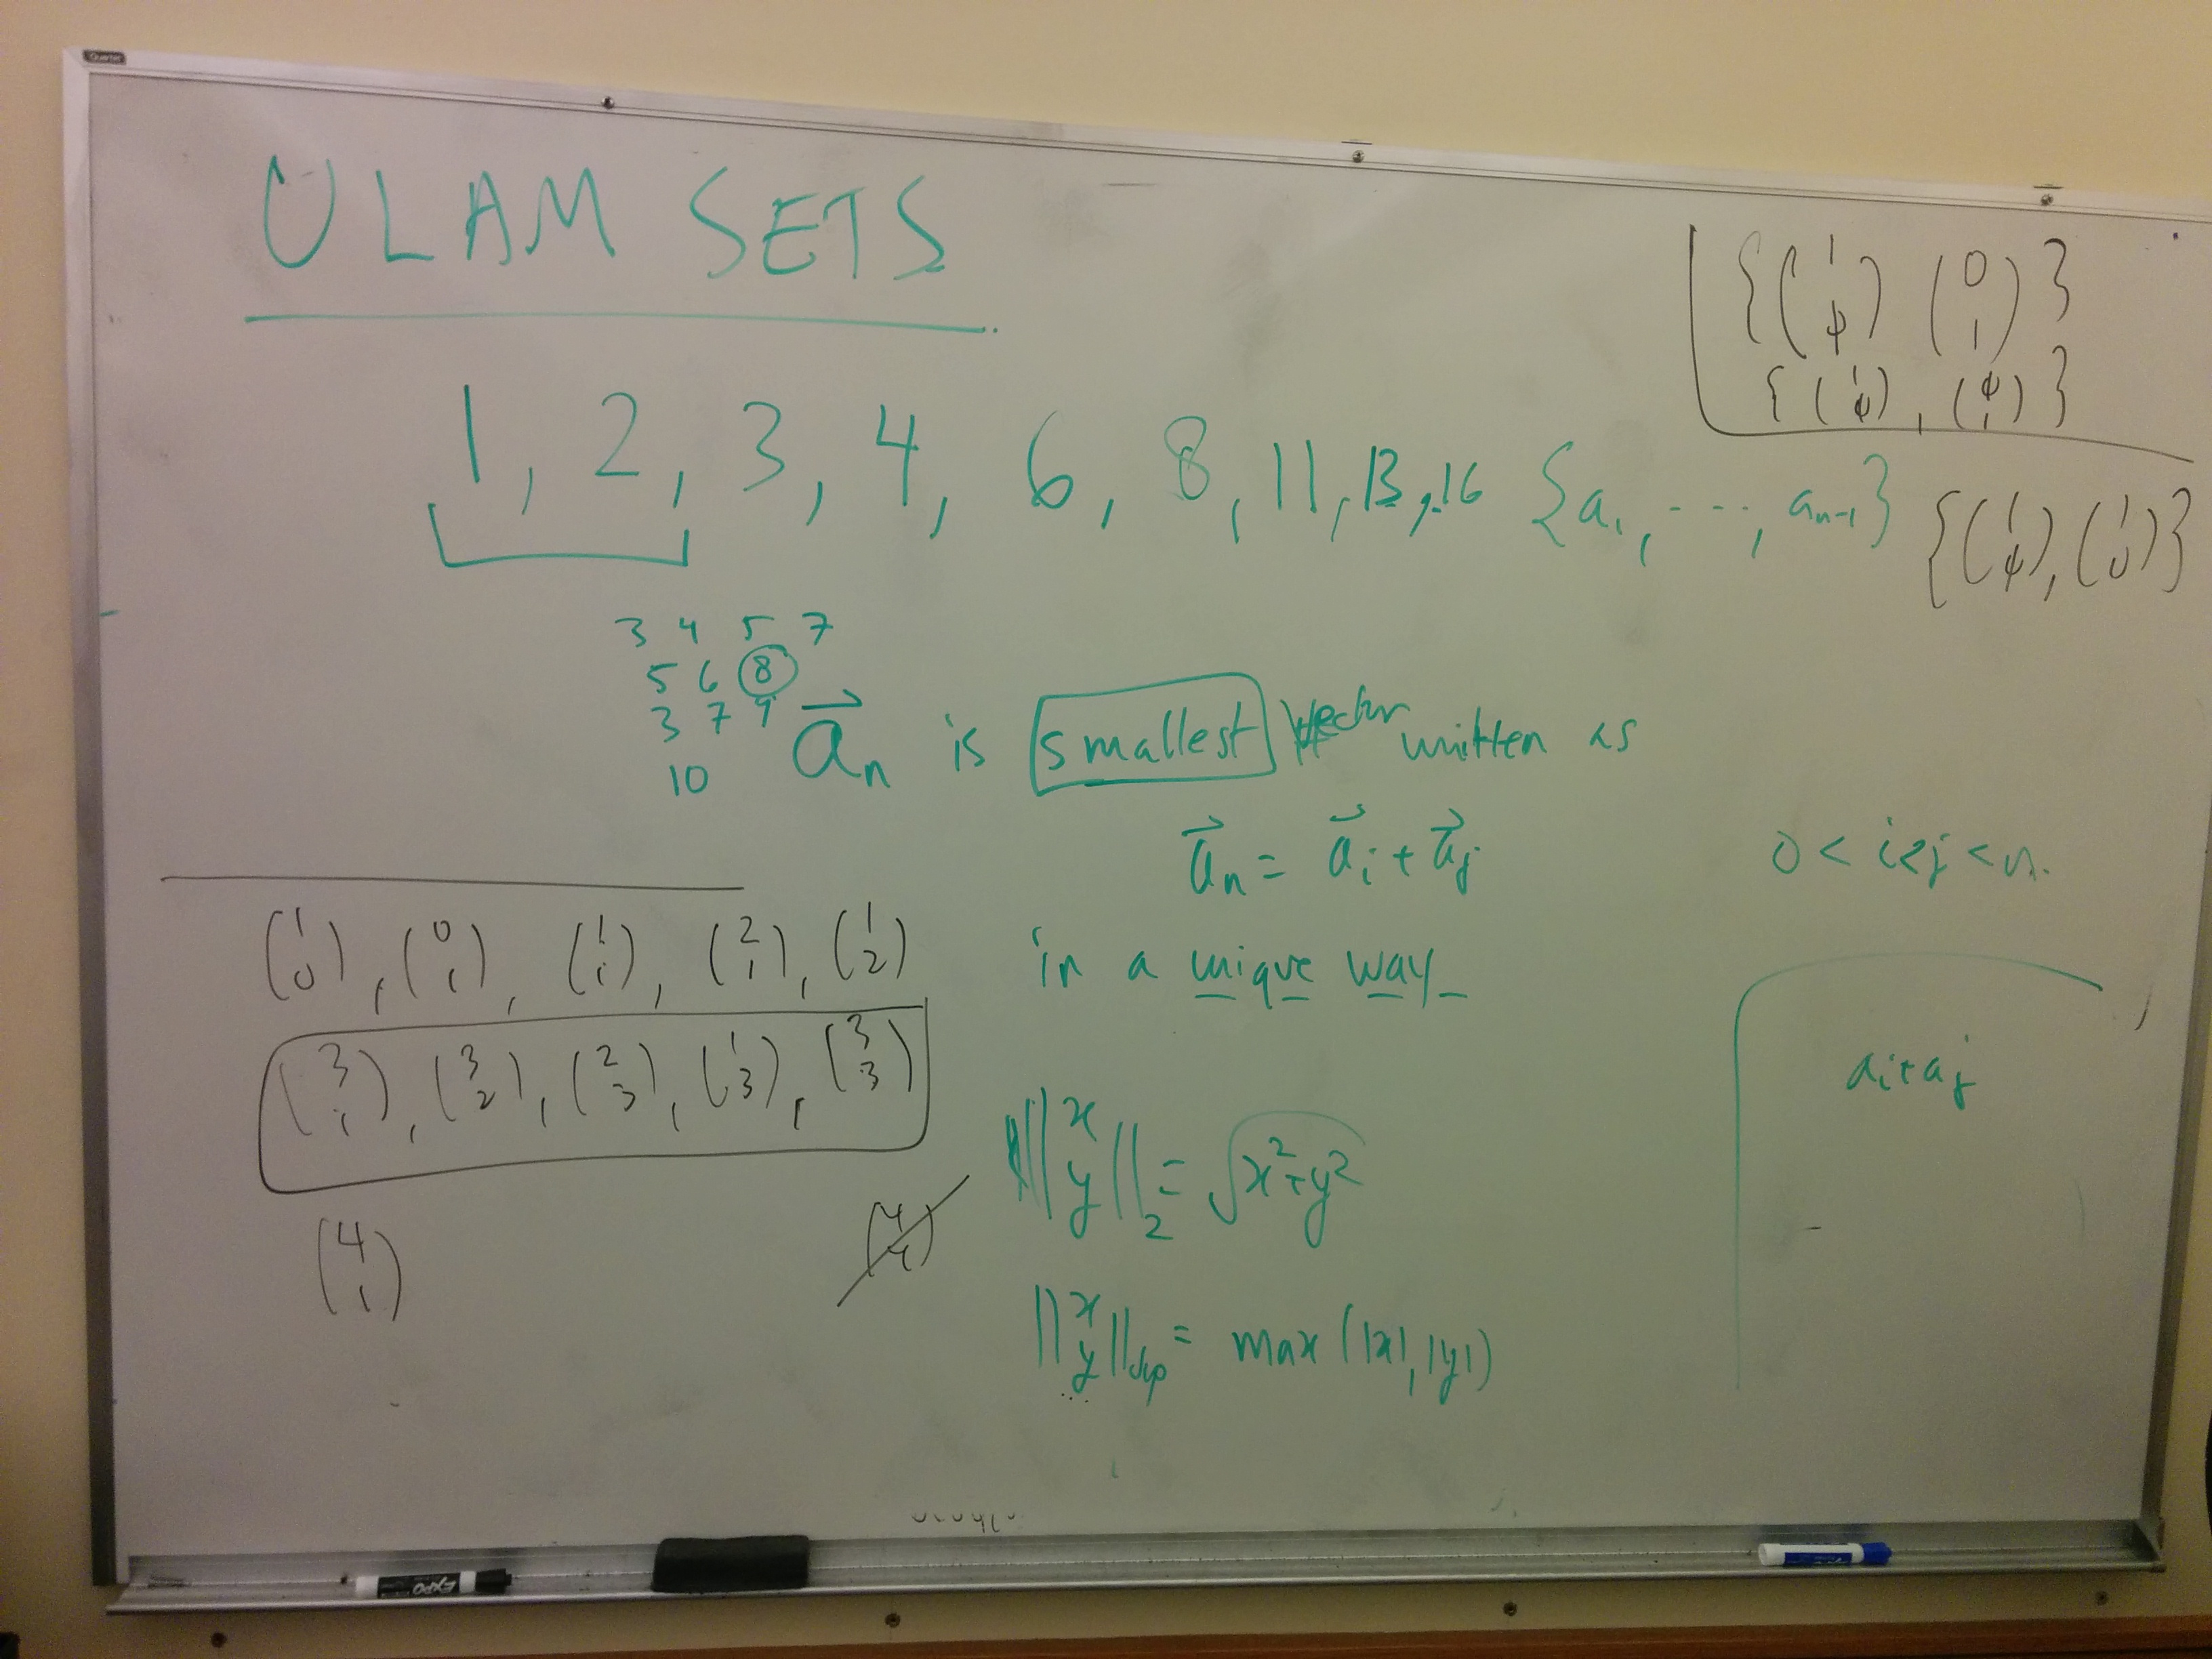 Quartet
ULAM SETS
{(1 φ) (0 1)}
{(1 φ), (φ 1)}
1, 2, 3, 4, 6, 8, 11, 13, 16 {a₁, ---, aₙ₋₁}
{(1 φ), (1 0)}
3 4 5 7
5 6 8
3 7 9
10
a⃗ₙ is smallest vector written as
a⃗ₙ = a⃗ᵢ + a⃗ⱼ 0 < i<j < n.
in a unique way
(1 0), (0 1), (1 1), (2 1), (1 2)
(3 1), (3 2), (2 3), (1 3), (3 3)
(4 1) (4 4)
aᵢ+aⱼ
||x y||₂ = √x²+y²
||x y|| = max (|x|, |y|)
EXPO